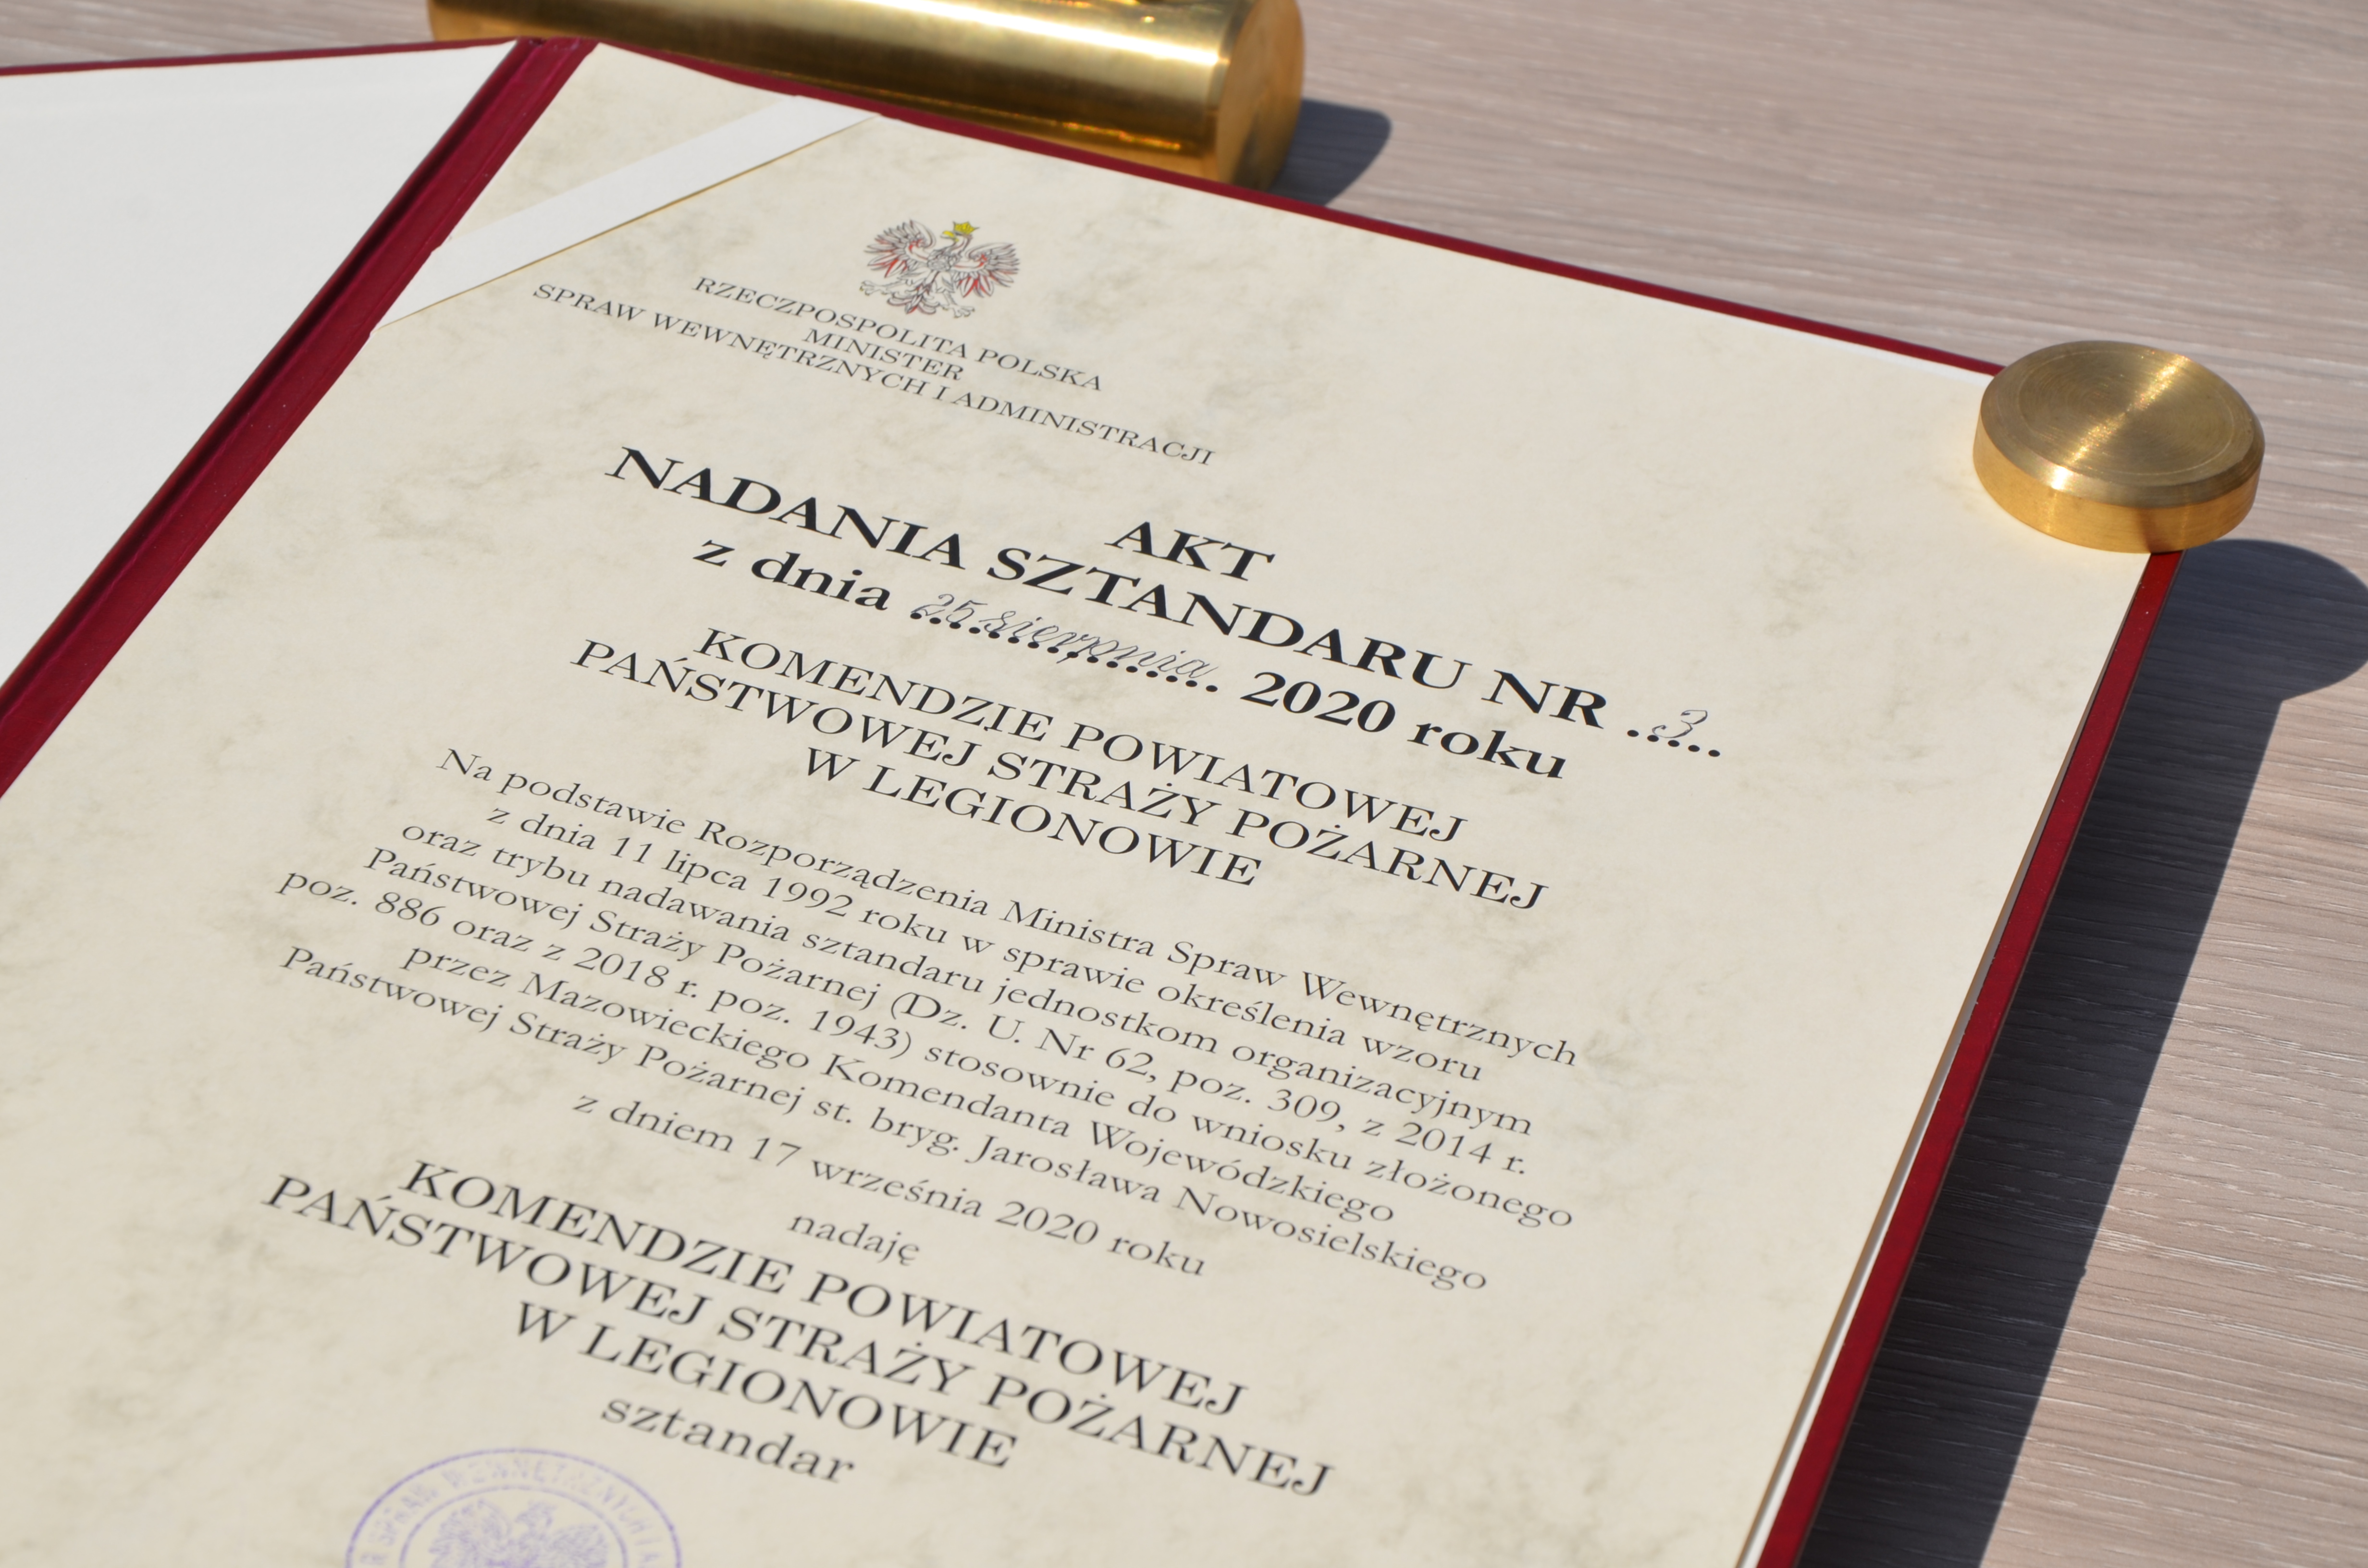 RZECZPOSPOLITA POLSKA
MINISTER
SPRAW WEWNĘTRZNYCH I ADMINISTRACJI
AKT
NADANIA SZTANDARU NR ..3...
z dnia 25 sierpnia 2020 roku
KOMENDZIE POWIATOWEJ
PAŃSTWOWEJ STRAŻY POŻARNEJ
W LEGIONOWIE
Na podstawie Rozporządzenia Ministra Spraw Wewnętrznych
z dnia 11 lipca 1992 roku w sprawie określenia wzoru
oraz trybu nadawania sztandaru jednostkom organizacyjnym
Państwowej Straży Pożarnej (Dz. U. Nr 62, poz. 309, z 2014 r.
poz. 886 oraz z 2018 r. poz. 1943) stosownie do wniosku złożonego
przez Mazowieckiego Komendanta Wojewódzkiego
Państwowej Straży Pożarnej st. bryg. Jarosława Nowosielskiego
z dniem 17 września 2020 roku
nadaję
KOMENDZIE POWIATOWEJ
PAŃSTWOWEJ STRAŻY POŻARNEJ
W LEGIONOWIE
sztandar
SPRAW WEWNĘTRZNYCH I